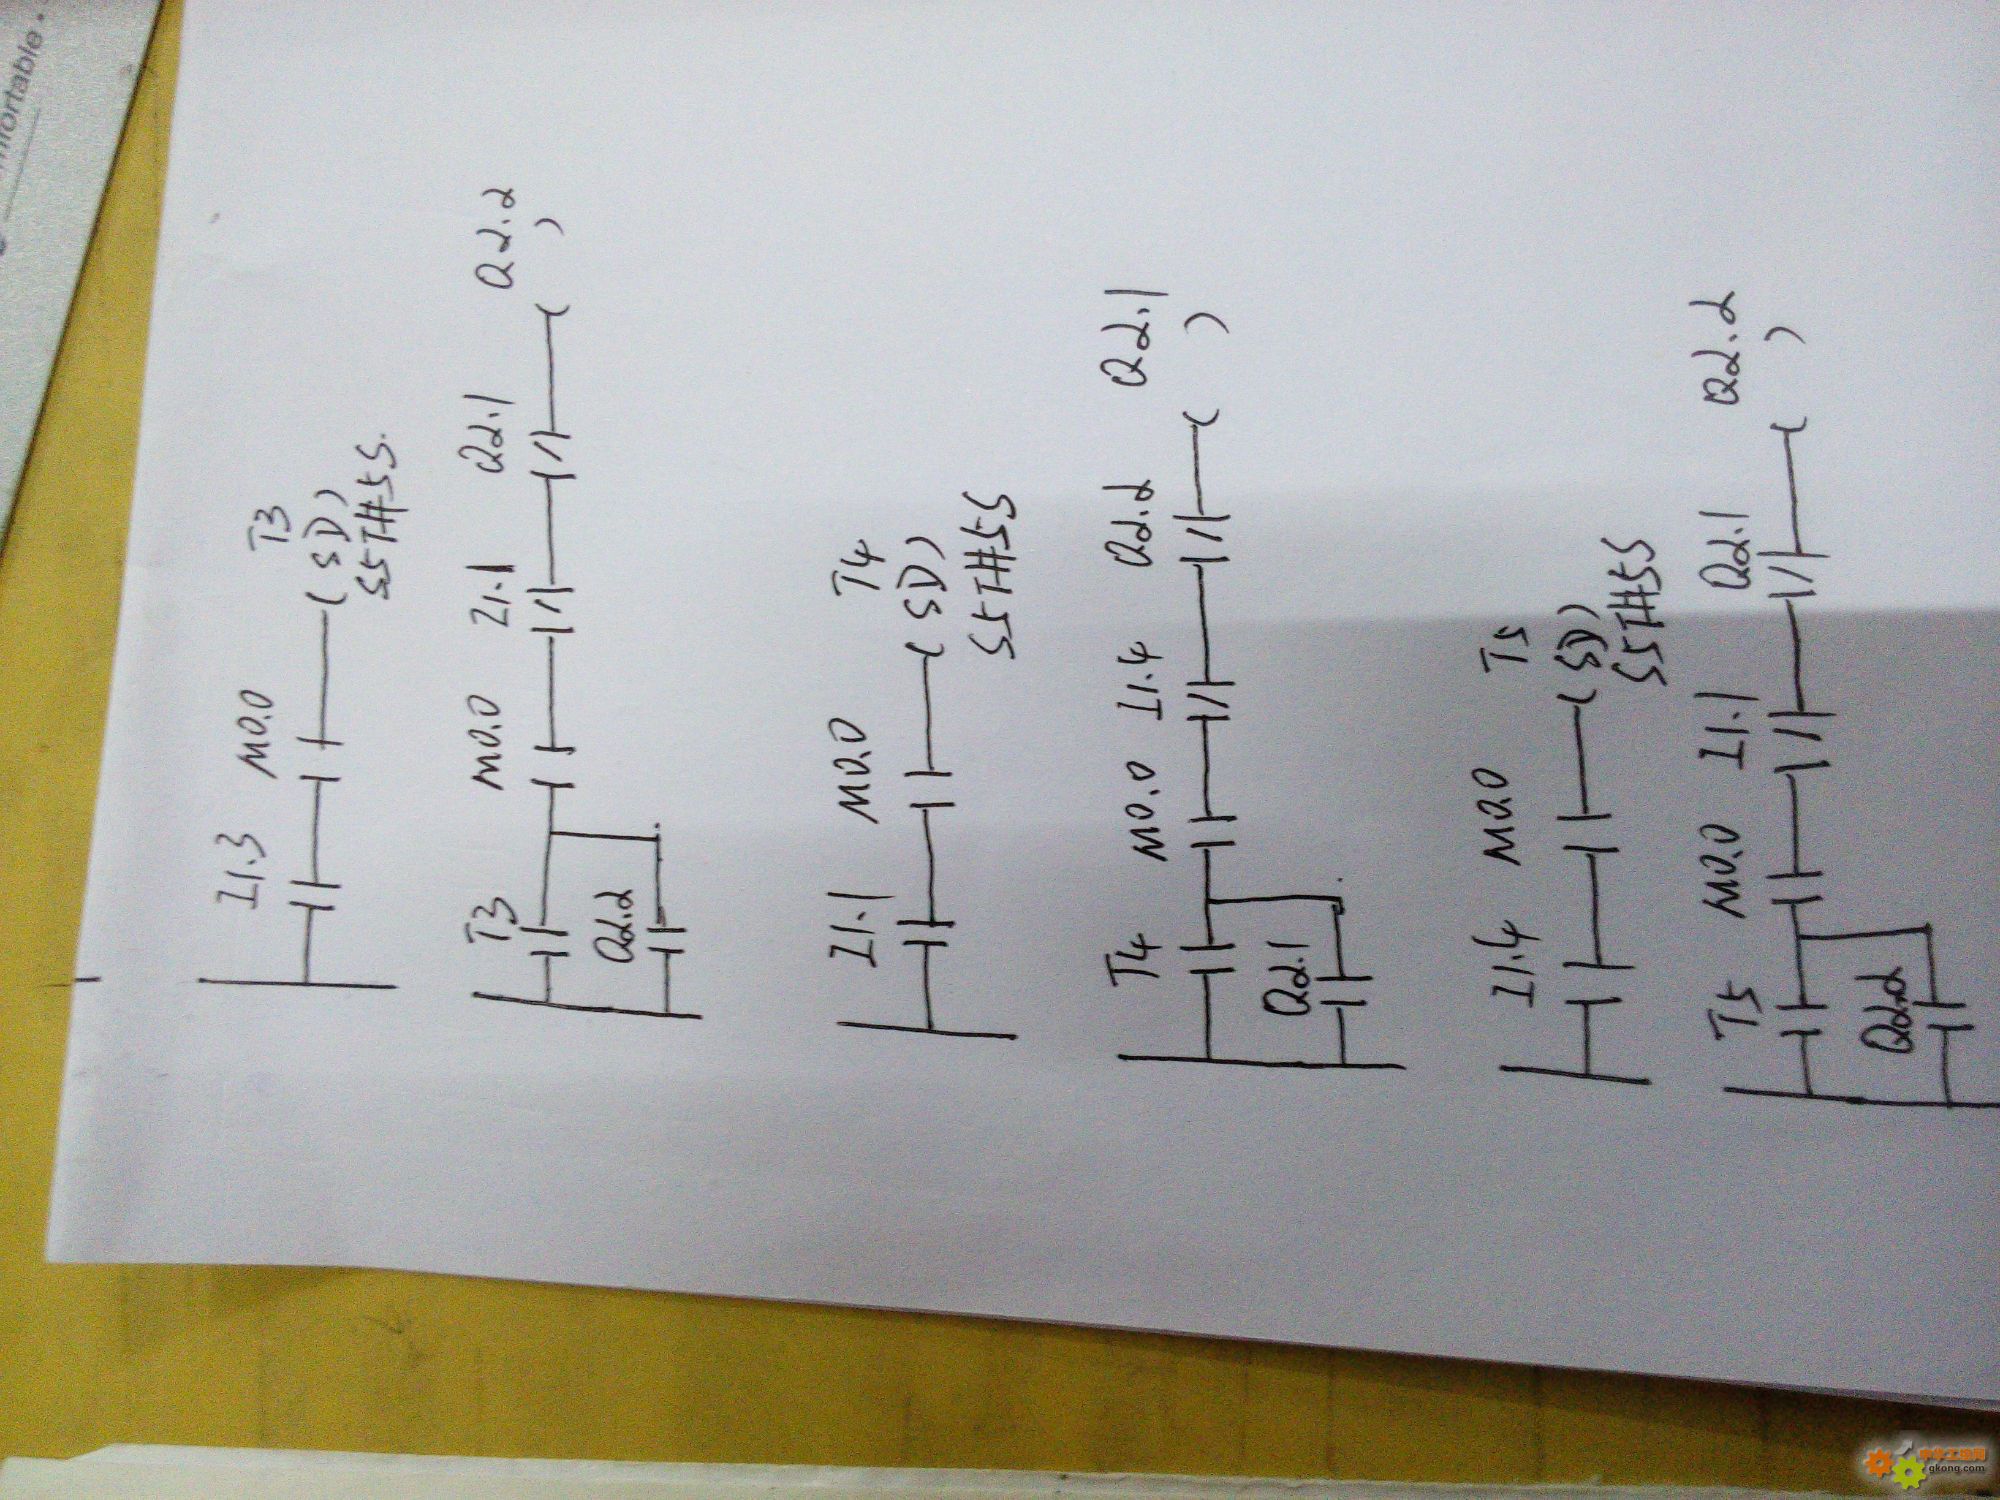 I1.3 M0.0 T3
(SD)
S5T#5S.
T3 M0.0 I1.1 Q2.1 Q2.2
( )
Q2.2
I1.1 M0.0 T4
(SD)
S5T#5S
T4 M0.0 I1.4 Q2.2 Q2.1
( )
Q2.1
I1.4 M0.0 T5
(SD)
S5T#5S
T5 M0.0 I1.1 Q2.1 Q2.2
( )
Q2.2
mfortable.
中华工控网
gkong.com